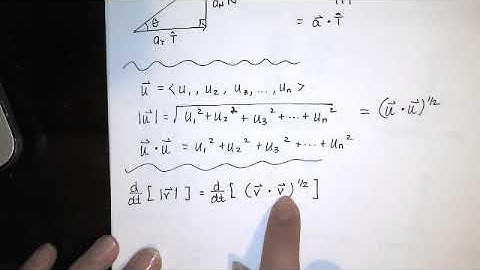 θ
a_N N̂
a_T T̂
= a⃗ · T̂
u⃗ = < u₁, u₂, u₃, ..., uₙ >
|u⃗| = √(u₁² + u₂² + u₃² + ... + uₙ²) = (u⃗ · u⃗)^1/2
u⃗ · u⃗ = u₁² + u₂² + u₃² + ... + uₙ²
d/dt [ |v⃗| ] = d/dt [ (v⃗ · v⃗)^1/2 ]